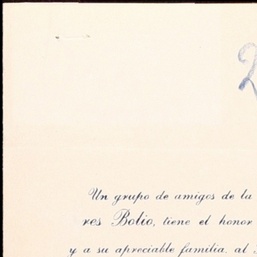 Un grupo de amigos de la
res Bolio, tiene el honor
y a su apreciable familia, al